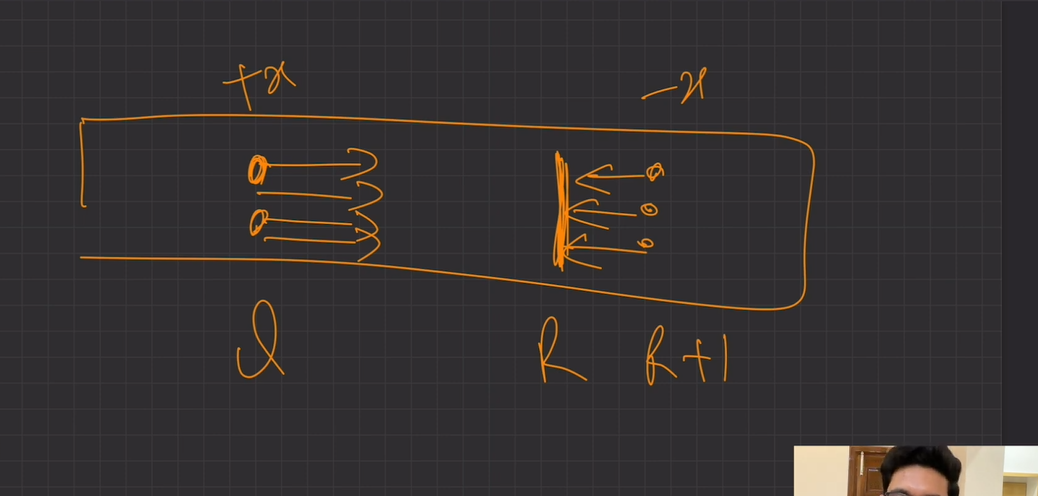 +x -x
l R R+1